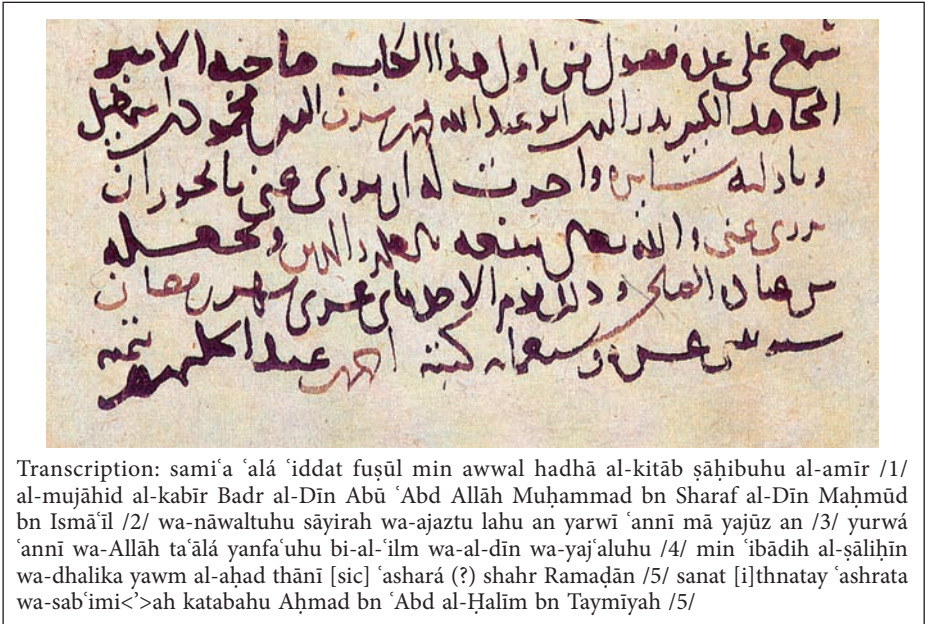 سمع علي عدة فصول من اول هذا الكتاب صاحبه الامير
المجاهد الكبير بدر الدين ابو عبد الله محمد بن شرف الدين محمود بن اسمعيل
وناولته سايره واجزت له ان يروي عني ما يجوز ان
يروى عني والله تعالى ينفعه بالعلم والدين ويجعله
من عباده الصالحين وذلك يوم الاحد ثاني عشرى شهر رمضان
سنة ثنتي عشرة وسبعمايه كتبه احمد بن عبد الحليم بن تيميه
Transcription: samiʿa ʿalá ʿiddat fuṣūl min awwal hadhā al-kitāb ṣāḥibuhu al-amīr /1/
al-mujāhid al-kabīr Badr al-Dīn Abū ʿAbd Allāh Muḥammad bn Sharaf al-Dīn Maḥmūd
bn Ismāʿīl /2/ wa-nāwaltuhu sāyirah wa-ajaztu lahu an yarwī ʿannī mā yajūz an /3/ yurwá
ʿannī wa-Allāh taʿālá yanfaʿuhu bi-al-ʿilm wa-al-dīn wa-yajʿaluhu /4/ min ʿibādih al-ṣāliḥīn
wa-dhalika yawm al-aḥad thānī [sic] ʿashará (?) shahr Ramaḍān /5/ sanat [i]thnatay ʿashrata
wa-sabʿimi<ʾ>ah katabahu Aḥmad bn ʿAbd al-Ḥalīm bn Taymīyah /5/